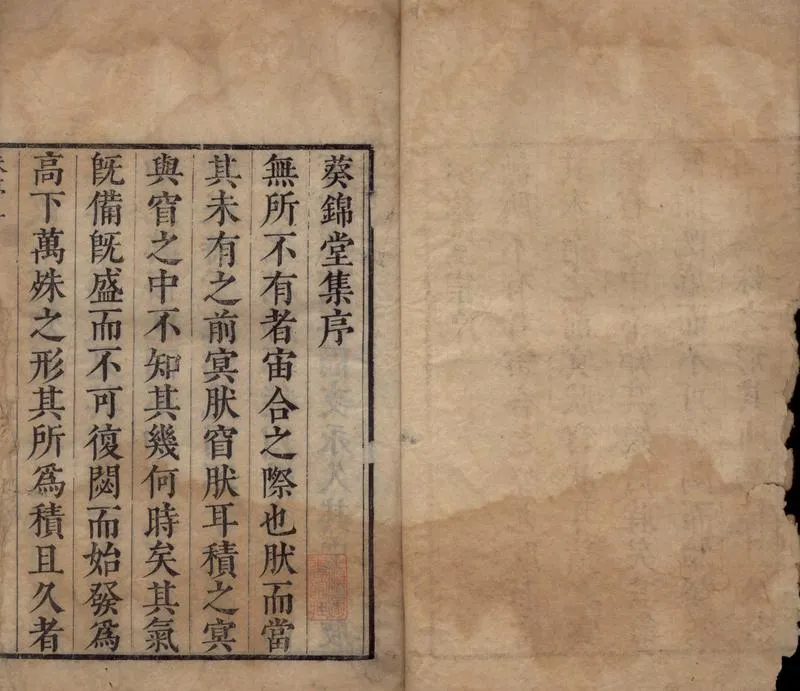 葵錦堂集序
無所不有者宙合之際也肰而當
其未有之前冥肰窅肰耳積之冥
與窅之中不知其幾何時矣其氣
旣備旣盛而不可復閟而始發爲
高下萬姝之形其所爲積且久者